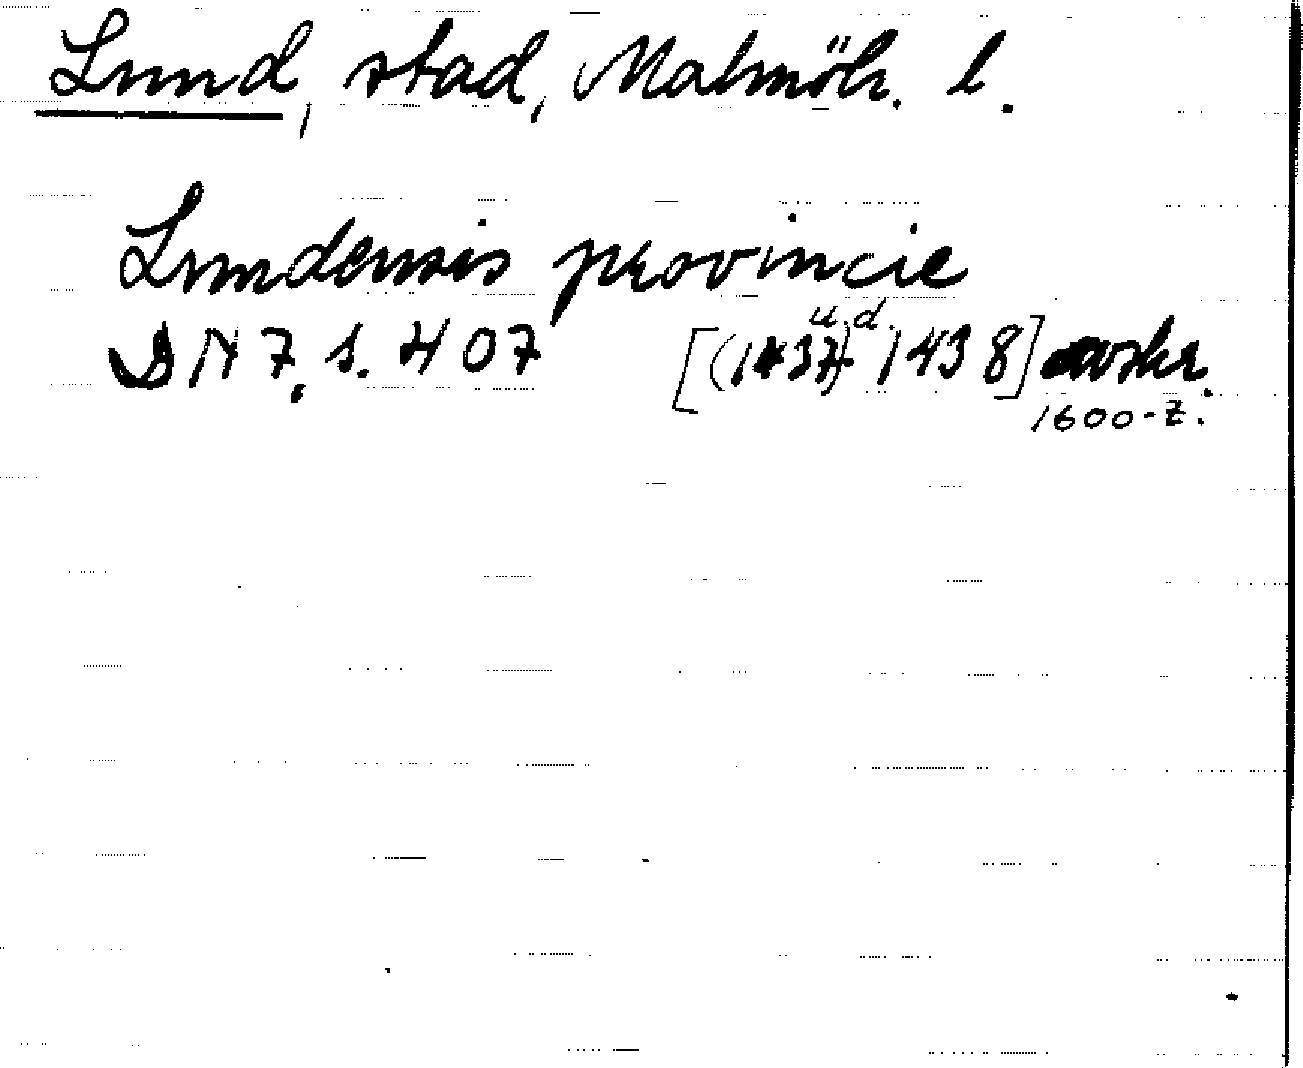 Lund, stad, Malmöh. l.
Lundensis provincie
DN 7, s. 407 [(1437) u.d. 1438] avskr.
1600-t.